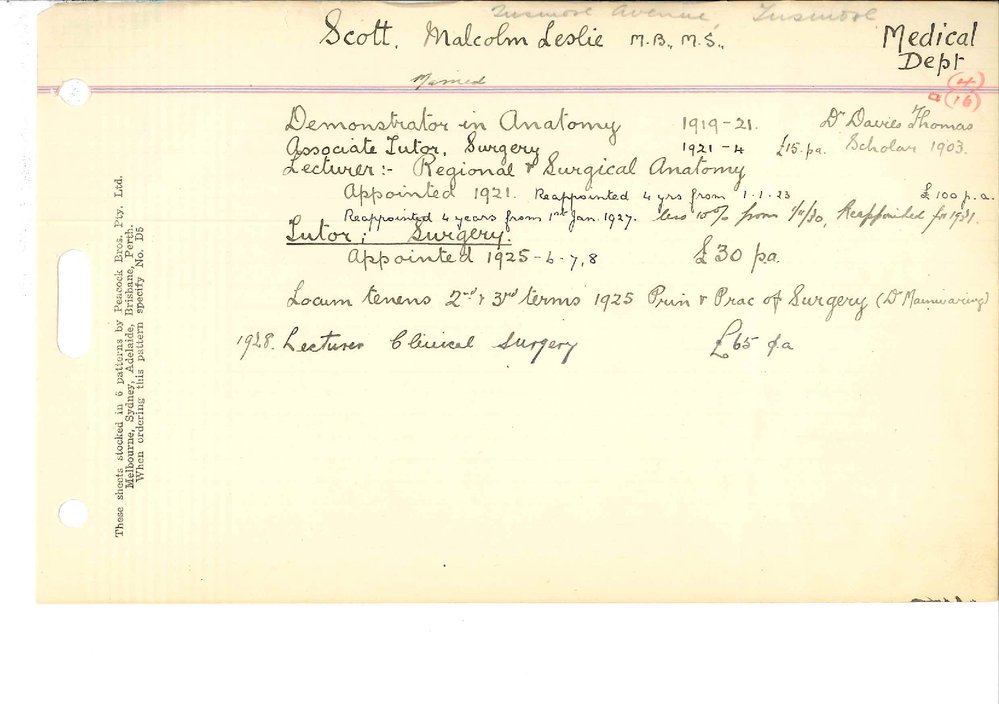 Tusmore Avenue, Tusmore
Scott, Malcolm Leslie M.B., M.S.,
Medical
Dept
Married
(4)
(16)
Demonstrator in Anatomy 1919-21. Dr Davies Thomas
Associate Tutor, Surgery 1921-4 £15.pa. Scholar 1903.
Lecturer:- Regional & Surgical Anatomy
Appointed 1921. Reappointed 4 yrs from 1.1.23 £100 p.a.
Reappointed 4 years from 1st Jan. 1927. less 10% from 1/11/30, Reappointed for 1931.
Tutor; Surgery.
Appointed 1925-6-7,8 £30 pa.
Locum tenens 2nd & 3rd terms 1925 Prin & Prac of Surgery (Dr Mainwaring)
1928. Lecturer Clinical Surgery £65 pa
These sheets stocked in 6 patterns by Peacock Bros. Pty. Ltd.
Melbourne, Sydney, Adelaide, Brisbane, Perth.
When ordering this pattern specify No. D5